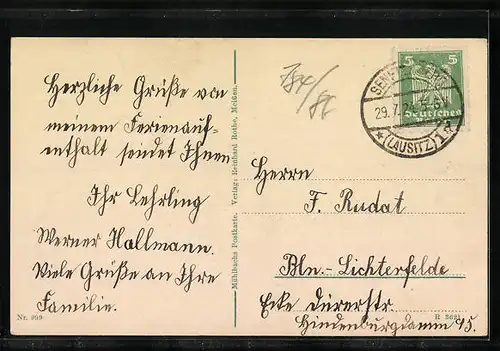 Herzliche Grüße von
meinem Ferienauf-
enthalt sendet Ihnen
Ihr Lehrling
Werner Hallmann.
Viele Grüße an Ihre
Familie.
Nr. 999
Mühlbachs Postkarte. Verlag: Reinhard Rothe, Meißen.
784/82
5
29.7.24
Deutsches
*(LAUSITZ)1
Herrn
F. Rudat
Bln.-Lichterfelde
Ecke Dürerstr.
Hindenburgdamm 45.